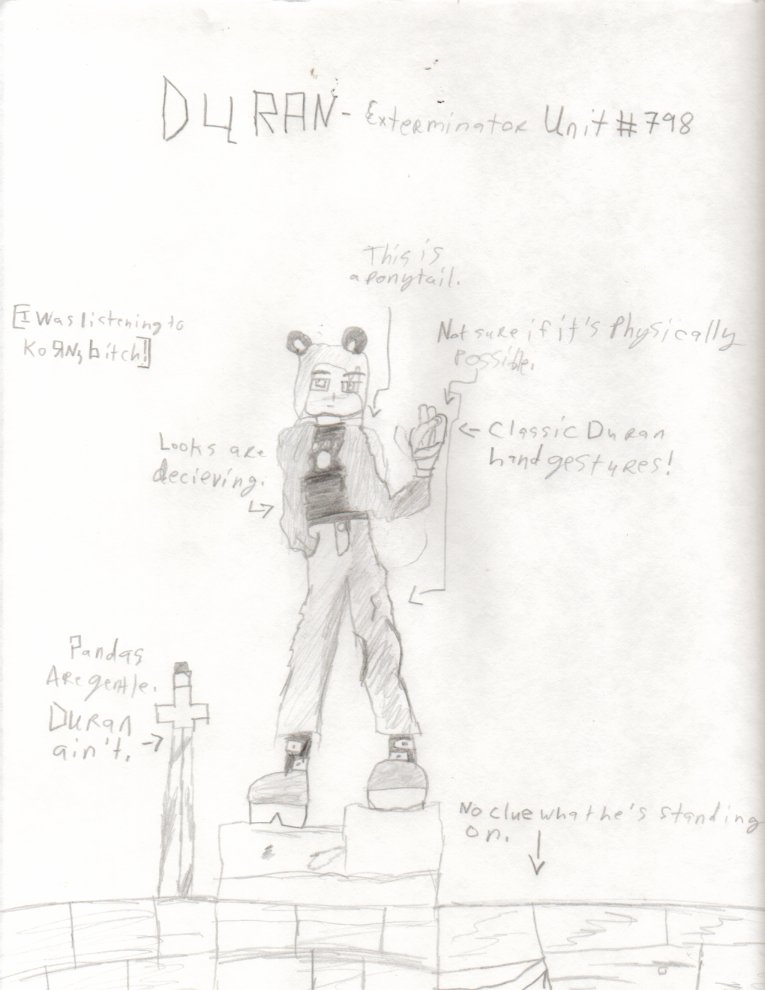 DURAN - Exterminator Unit #798
This is
a ponytail.
[I was listening to
KoЯN, bitch!]
Not sure if it's Physically
possible.
<- Classic Duran
hand gestures!
Looks are
decieving.
Pandas
Are gentle.
Duran
ain't.
No clue what he's standing
on.